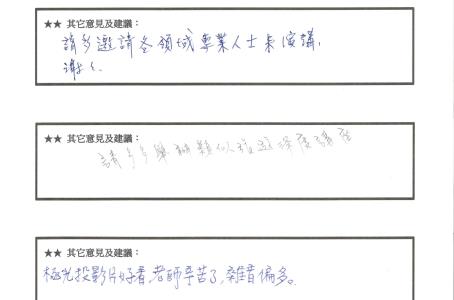 ★★ 其它意見及建議：
請多邀請各領域專業人士來演講，
謝謝。
★★ 其它意見及建議：
請多多舉辦類似旅遊深度講座
★★ 其它意見及建議：
極光投影片好看，老師辛苦了，雜音偏多。